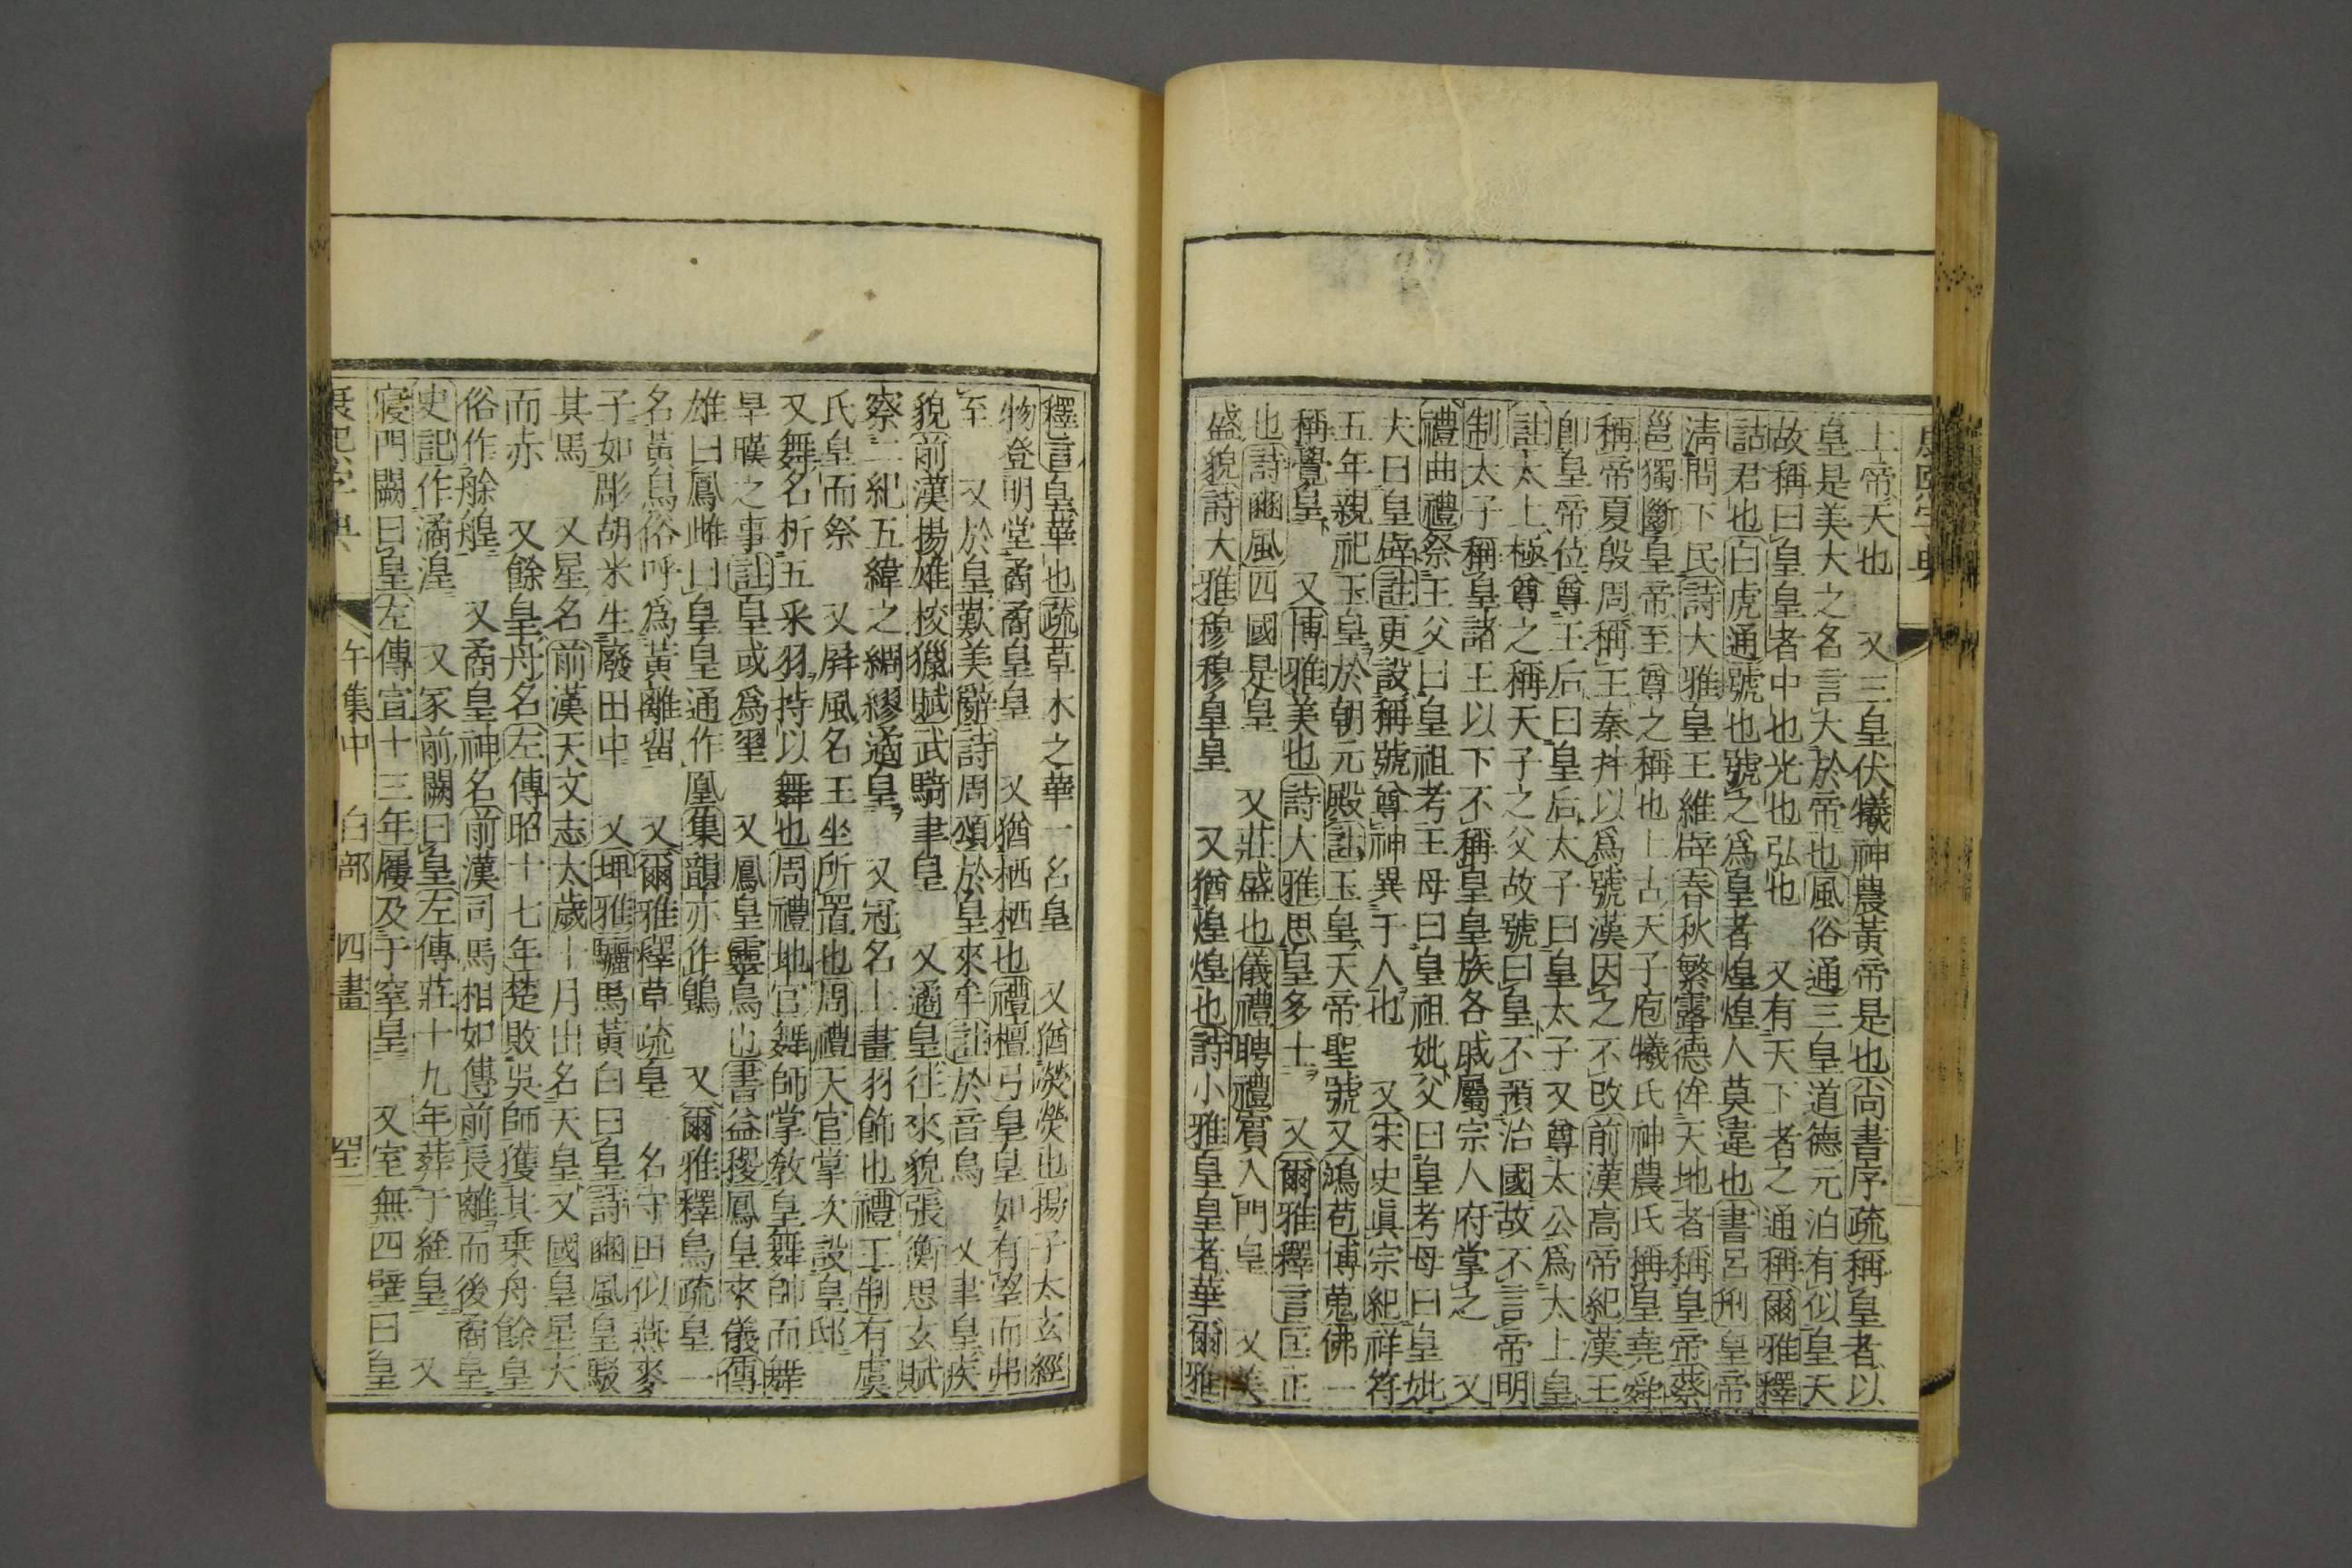 上帝天也　又三皇伏犧神農黃帝是也尙書序疏稱皇者以
皇是美大之名言大於帝也風俗通三皇道德元泊有似皇天
故稱曰皇皇者中也光也弘也　又有天下者之通稱爾雅釋
詁君也白虎通號也號之爲皇者煌煌人莫違也書呂刑皇帝
淸問下民詩大雅皇王維辟春秋繁露德侔天地者稱皇帝蔡
邕獨斷皇帝至尊之稱也上古天子庖犧氏神農氏稱皇堯舜
稱帝夏殷周稱王秦幷以爲號漢因之不改前漢高帝紀漢王
卽皇帝位尊王后曰皇后太子曰皇太子又尊太公爲太上皇
註太上極尊之稱天子之父故號曰皇不預治國故不言帝明
制太子稱皇諸王以下不稱皇皇族各戚屬宗人府掌之　又
禮曲禮祭王父曰皇祖考王母曰皇祖妣父曰皇考母曰皇妣
夫曰皇辟註更設稱號尊神異于人也　又宋史眞宗紀祥符
五年親祀玉皇於朝元殿註玉皇天帝聖號又鴻苞博蒐佛一
稱覺皇　又博雅美也詩大雅思皇多士　又爾雅釋言匡正
也詩豳風四國是皇　又莊盛也儀禮聘禮賓入門皇　又美
盛貌詩大雅穆穆皇皇　又猶煌煌也詩小雅皇皇者華爾雅
釋言皇華也疏草木之華一名皇　又猶熒熒也揚子太玄經
物登明堂矞矞皇皇　又猶栖栖也禮檀弓皇皇如有望而弗
至　又於皇歎美辭詩周頌於皇來牟註於音烏　又聿皇疾
貌前漢揚雄校獵賦武騎聿皇　又遹皇往來貌張衡思玄賦
察二紀五緯之綢繆遹皇　又冠名上畫羽飾也禮王制有虞
氏皇而祭　又屛風名王坐所置也周禮天官掌次設皇邸
又舞名析五采羽持以舞也周禮地官舞師掌敎皇舞帥而舞
旱暵之事註皇或爲䍿　又鳳皇靈鳥也書益稷鳳皇來儀傳
雄曰鳳雌曰皇皇通作凰集韻亦作䳨　又爾雅釋鳥疏皇一
名黃鳥俗呼爲黃離留　又爾雅釋草疏皇　名守田似燕麥
子如彫胡米生廢田中　又埤雅驪馬黃白曰皇詩豳風皇駁
其馬　又星名前漢天文志太歲十月出名天皇又國皇星大
而赤　又餘皇舟名左傳昭十七年楚敗吳師獲其乗舟餘皇
俗作艅艎　又矞皇神名前漢司馬相如傳前長離而後矞皇
史記作潏湟　又冢前闕曰皇左傳莊十九年葬于絰皇　又
寢門闕曰皇左傳宣十三年屨及于窒皇　又室無四壁曰皇
康熙字典　午集中　白部　四畫